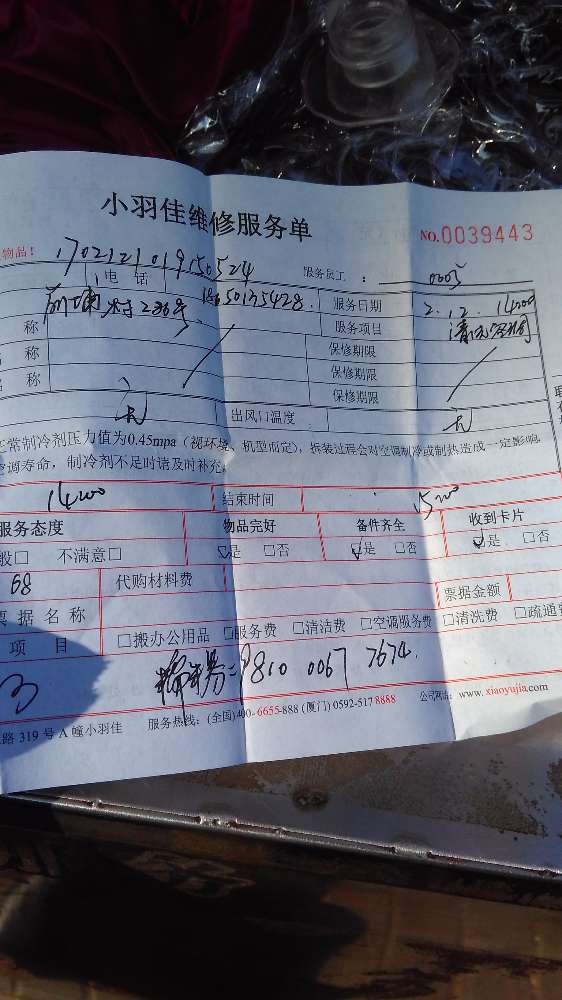 小羽佳维修服务单
NO.0039443
物品: 170212101915 0524
电 话 服务员工 : 0005
前埔村286号 18650135428. 服务日期 2.12. 14:00
称 服务项目 清洗空调
名 称 保修期限
名 称 保修期限
保修期限
出风门温度
正常制冷剂压力值为0.45mpa(视环境、机型而定),拆装过程会对空调制冷或制热造成一定影响,
空调寿命,制冷剂不足时请及时补充。
14:00 结束时间 15:00
服务态度 物品完好 备件齐全 收到卡片
般□ 不满意□ ☑是 □否 ☑是 □否 ☑是 □否
68 代购材料费 票据金额
票 据 名 称
项 目 □搬办公用品 □服务费 □清洁费 □空调服务费 □清洗费 □疏通费
券:9810 0067 7674.
路 319 号 A 幢小羽佳 服务热线:(全国)400-6655-888 (厦门) 0592-517 8888 公司网站: www.xiaoyujia.com